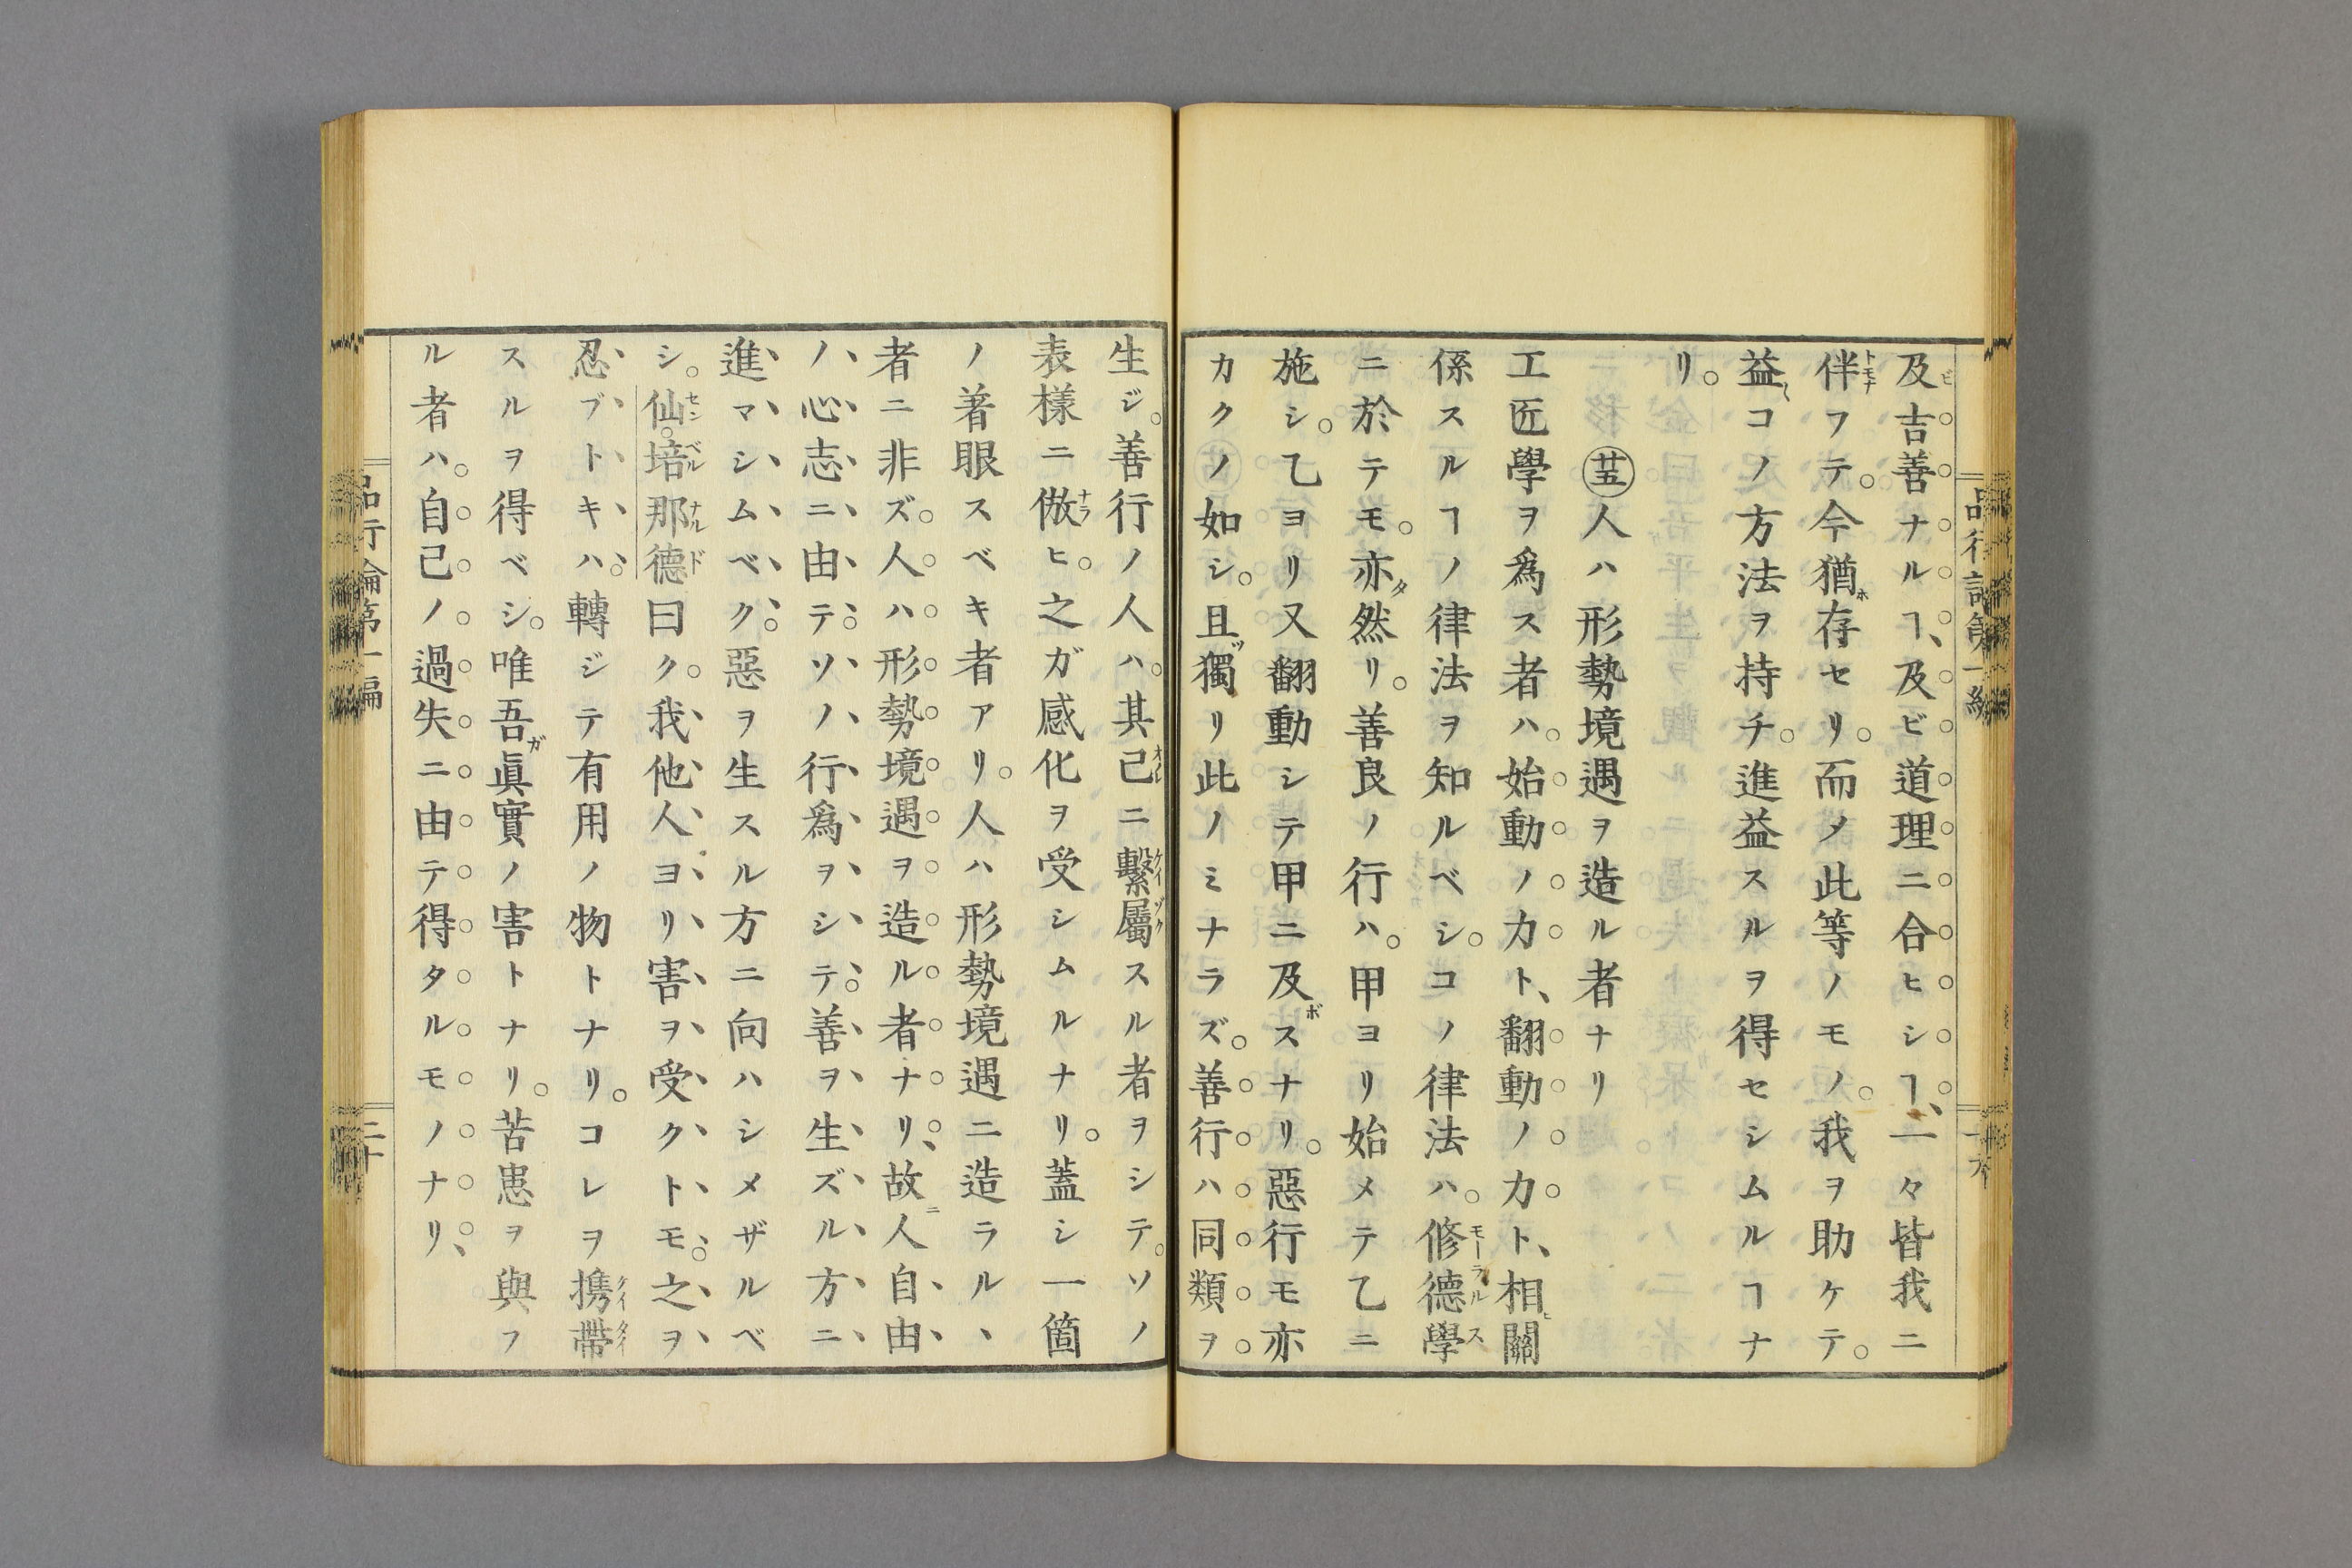 及ビ吉善ナルヿ、及ビ道理ニ合ヒシヿ、一々皆我ニ
伴フテ。今猶ホ存セリ。而メ此等ノモノ。我ヲ助ケテ。
益コノ方法ヲ持チ。進益スルヲ得セシムルヿナ
リ。
㉕人ハ形勢境遇ヲ造ル者ナリ
工匠學ヲ爲ス者ハ。始動ノ力ト、翻動ノ力ト、相ヒ關
係スルヿノ律法ヲ知ルベシ。コノ律法ハ。修德學
ニ於テモ。亦タ然リ。善良ノ行ハ。甲ヨリ始メテ乙ニ
施シ。乙ヨリ又翻動シテ甲ニ及ボスナリ。惡行モ亦
カクノ如シ。且ツ獨リ此ノミナラズ。善行ハ同類ヲ
生ジ。善行ノ人ハ。其己ニ繫屬スル者ヲシテ。ソノ
表樣ニ倣ヒ。之ガ感化ヲ受シムルナリ。蓋シ一箇
ノ著眼スベキ者アリ。人ハ形勢境遇ニ造ラル、
者ニ非ズ。人ハ形勢境遇ヲ造ル者ナリ、故ニ人自由
ノ心志ニ由テ。ソノ行爲ヲシテ。善ヲ生ズル方ニ
進マシムベク。惡ヲ生スル方ニ向ハシメザルベ
シ。仙培那德曰ク。我他人ヨリ害ヲ受クトモ。之ヲ
忍ブトキハ。轉ジテ有用ノ物トナリ。コレヲ携帶
スルヲ得ベシ。唯吾ガ眞實ノ害トナリ。苦患ヲ與フ
ル者ハ。自己ノ過失ニ由テ得タルモノナリ、
品行論第一編
二十